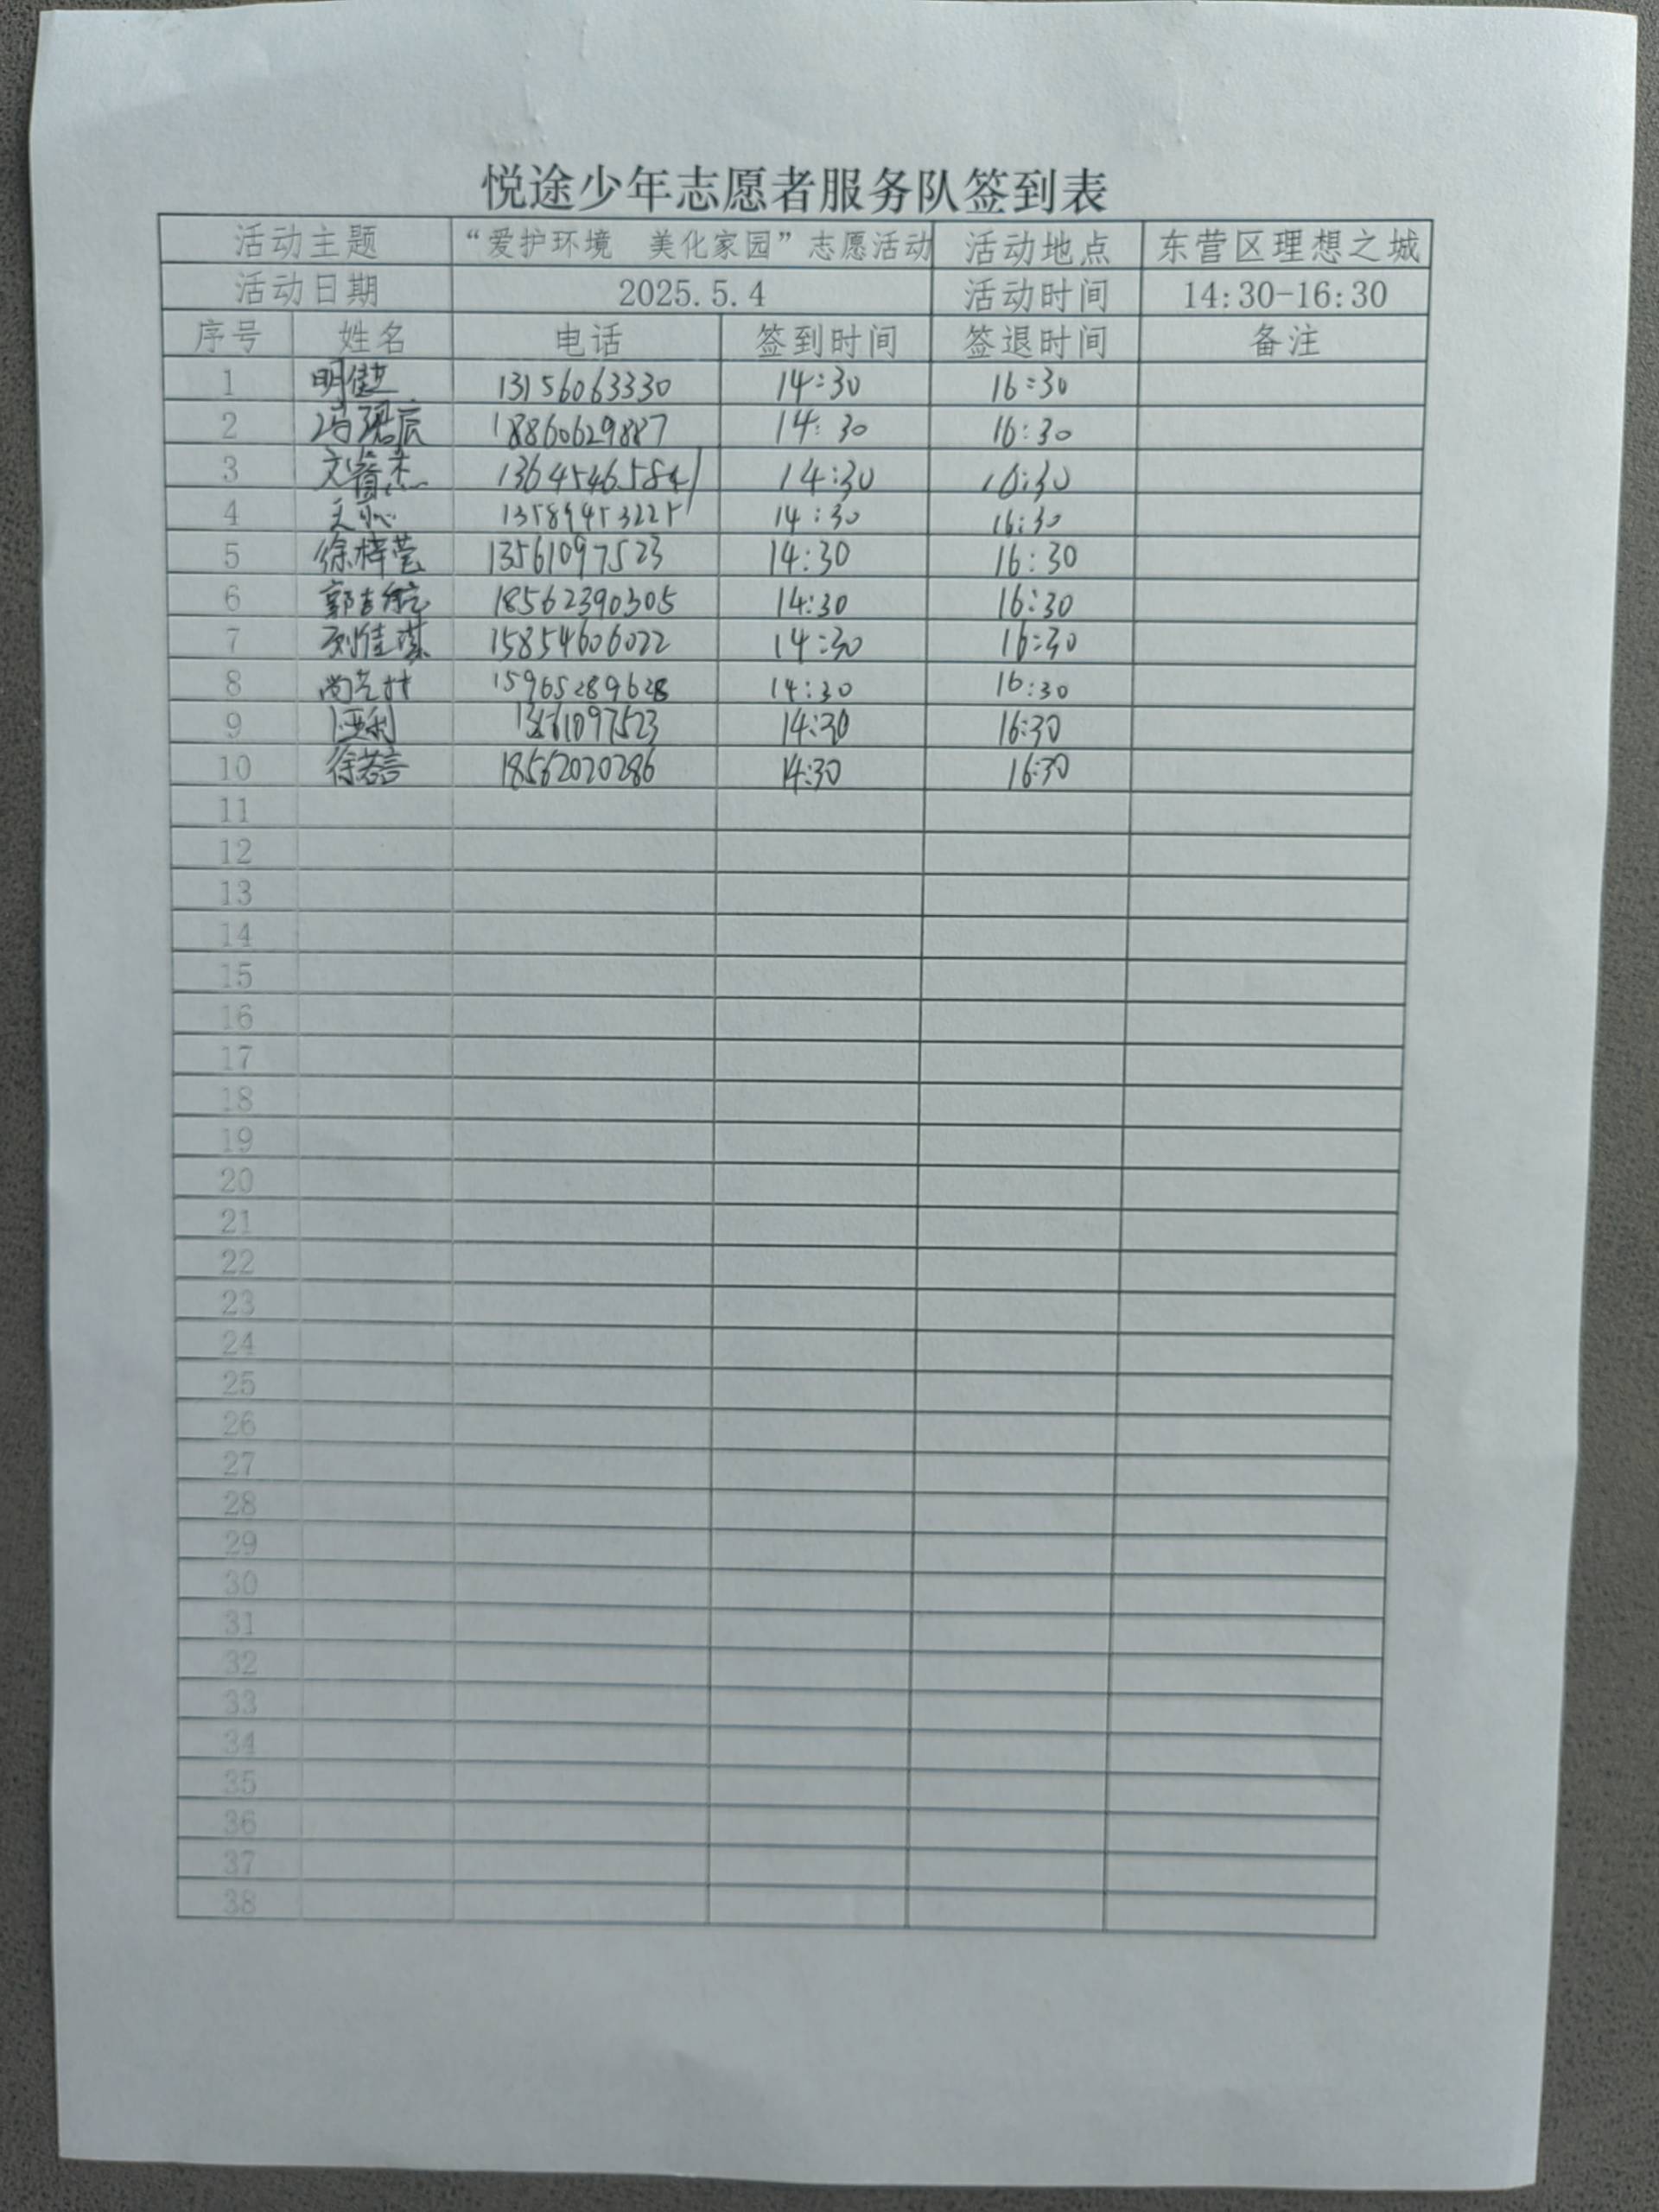 悦途少年志愿者服务队签到表
活动主题 “爱护环境 美化家园”志愿活动 活动地点 东营区理想之城
活动日期 2025.5.4 活动时间 14:30-16:30
序号 姓名 电话 签到时间 签退时间 备注
1 13156063330 14:30 16:30
2 18860629887 14:30 16:30
3 文睿杰 13645465841 14:30 16:30
4 14:30 16:30
5 徐梓萱 13561097523 14:30 16:30
6 18562390305 14:30 16:30
7 刘佳琪 15854606022 14:30 16:30
8 15965289628 14:30 16:30
9 13561097523 14:30 16:30
10 徐若言 18562020286 14:30 16:30
11
12
13
14
15
16
17
18
19
20
21
22
23
24
25
26
27
28
29
30
31
32
33
34
35
36
37
38